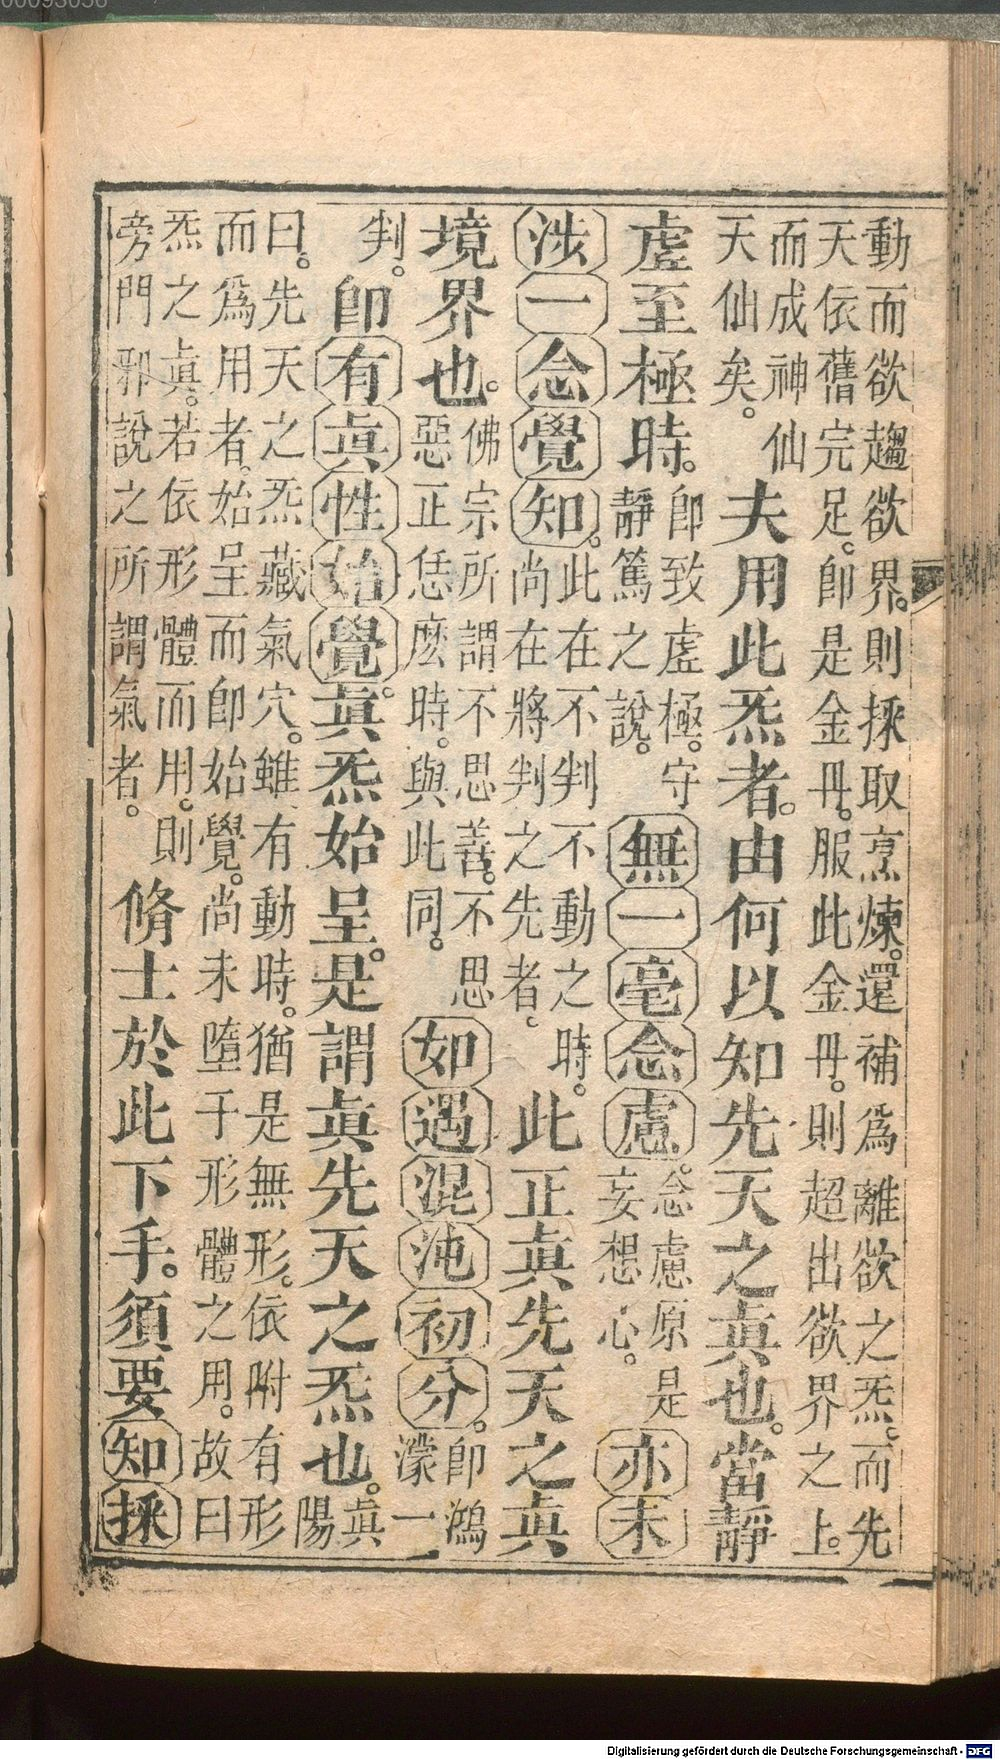 00093056
動而欲趨欲界。則採取烹煉。還補爲離欲之炁。而先
天依舊完足。卽是金丹。服此金丹。則超出欲界之上。
而成神仙
天仙矣。
夫用此炁者。由何以知先天之眞也。當靜
虛至極時。
卽致虛極。守
靜篤之說。
無一毫念慮。
念慮原是
妄想心。
亦未
涉一念覺知。
此在不判不動之時。
尚在將判之先者。
此正眞先天之眞
境界也。
佛宗所謂不思善。不思
惡正恁麽時。與此同。
如遇混沌初分。
卽鴻
濛一
判。
卽有眞性始覺。眞炁始呈。是謂眞先天之炁也。
眞
陽
曰。先天之炁藏氣穴。雖有動時。猶是無形。依附有形
而爲用者。始呈而卽始覺。尚未墮于形體之用。故曰
炁之眞。若依形體而用。則
旁門邪說之所謂氣者。
脩士於此下手。須要知採
Digitalisierung gefördert durch die Deutsche Forschungsgemeinschaft - DFG